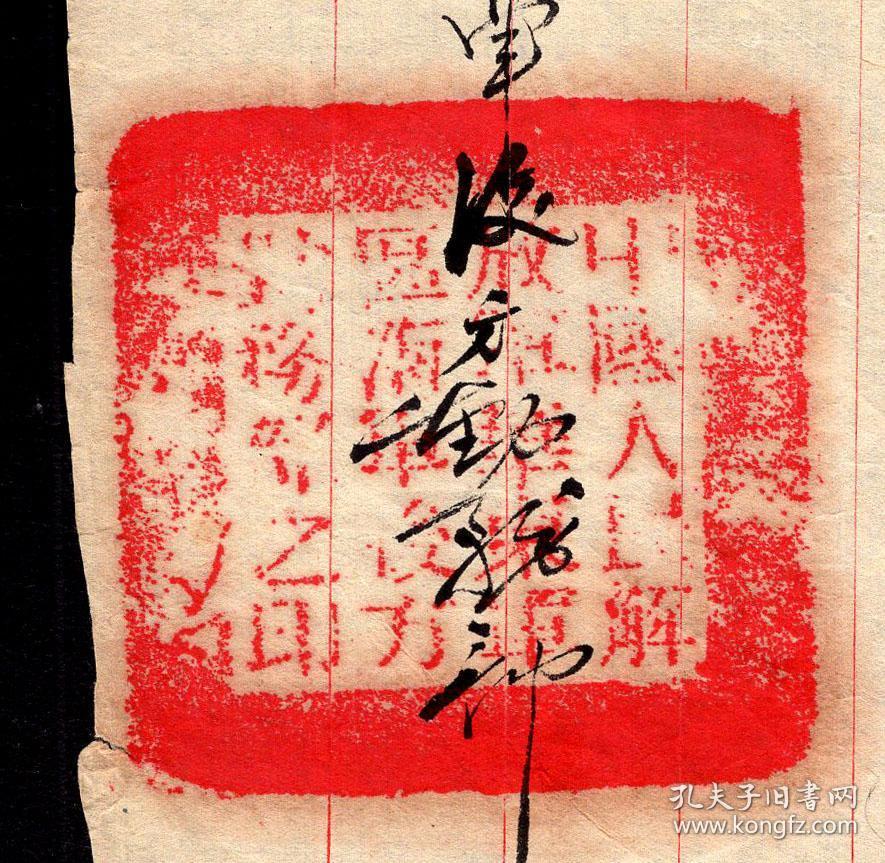 军後方勤務部
中國人民解
放軍華東軍
區海軍後方
勤務部之印
孔夫子旧書网
www.kongfz.com